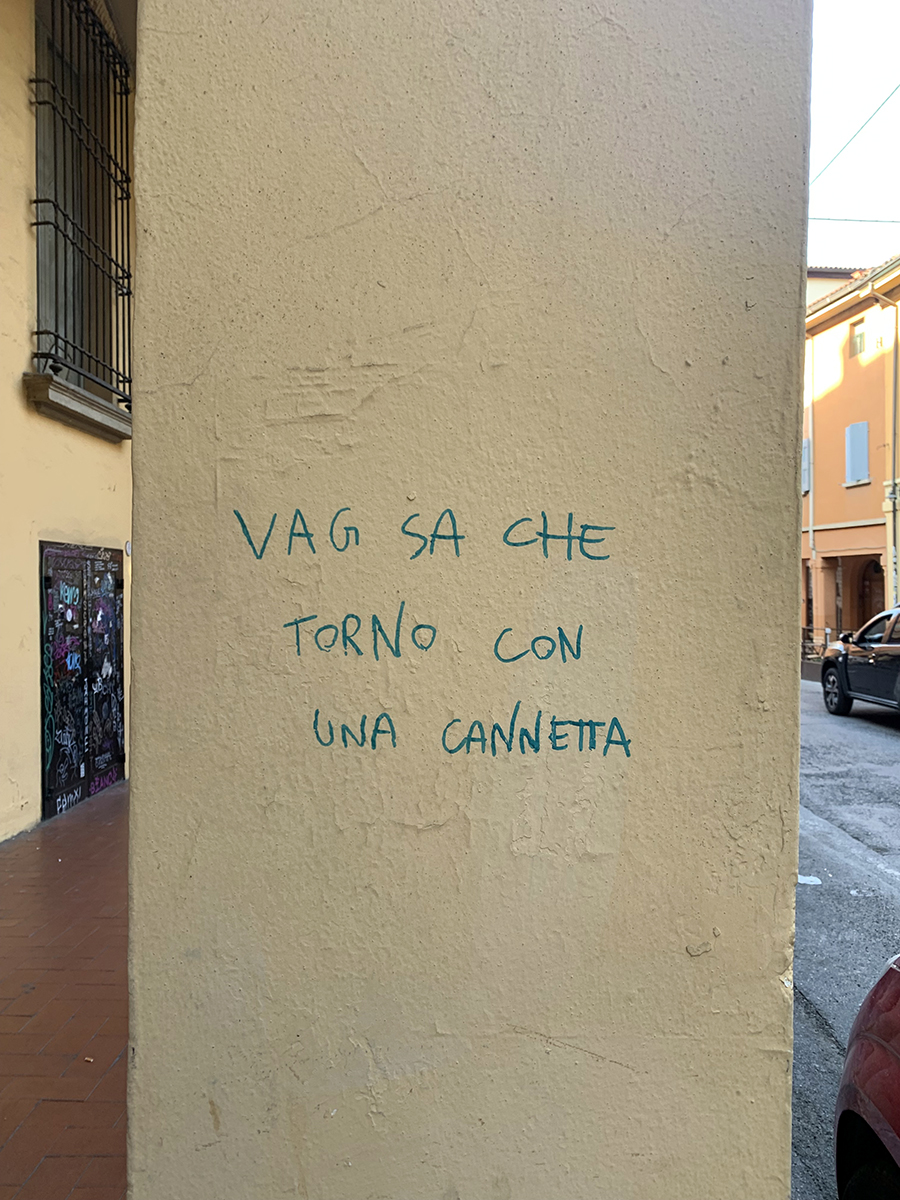 VAG SA CHE
TORNO CON
UNA CANNETTA